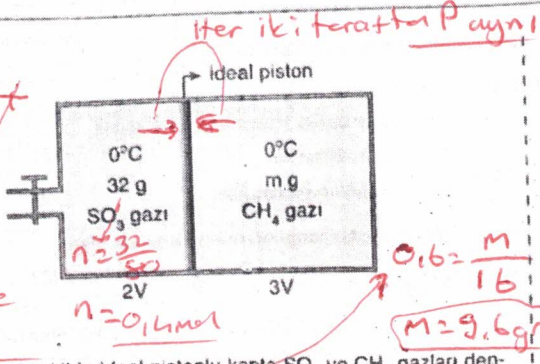 Her iki tarafta P aynı
İdeal piston
0°C
32 g
SO₃ gazı
n=32/80
2V
n=0,4mol
0°C
m g
CH₄ gazı
3V
0,6=m/16
m=9,6gr
ideal pistonlu kapta SO₃ ve CH₄ gazları den-